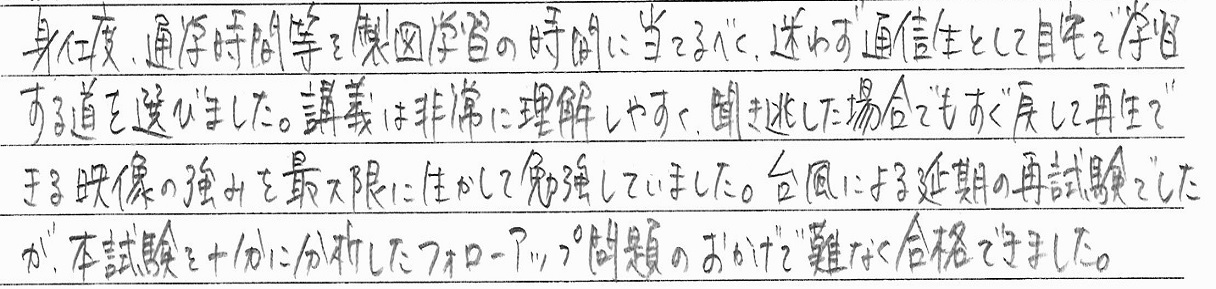 身仕度、通学時間等を製図学習の時間に当てるべく、迷わず通信生として自宅で学習
する道を選びました。講義は非常に理解しやすく、聞き逃した場合でもすぐ戻して再生で
きる映像の強みを最大限に生かして勉強していました。台風による延期の再試験でした
が、本試験を十分に分析したフォローアップ問題のおかげで難なく合格できました。